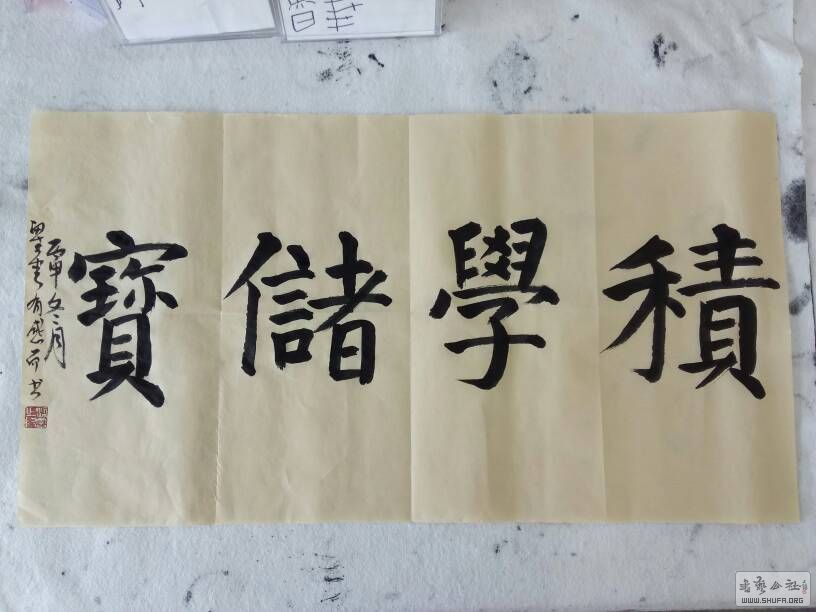 積學儲寶
丙申冬月
有感而书
書藝公社
WWW.SHUFA.ORG